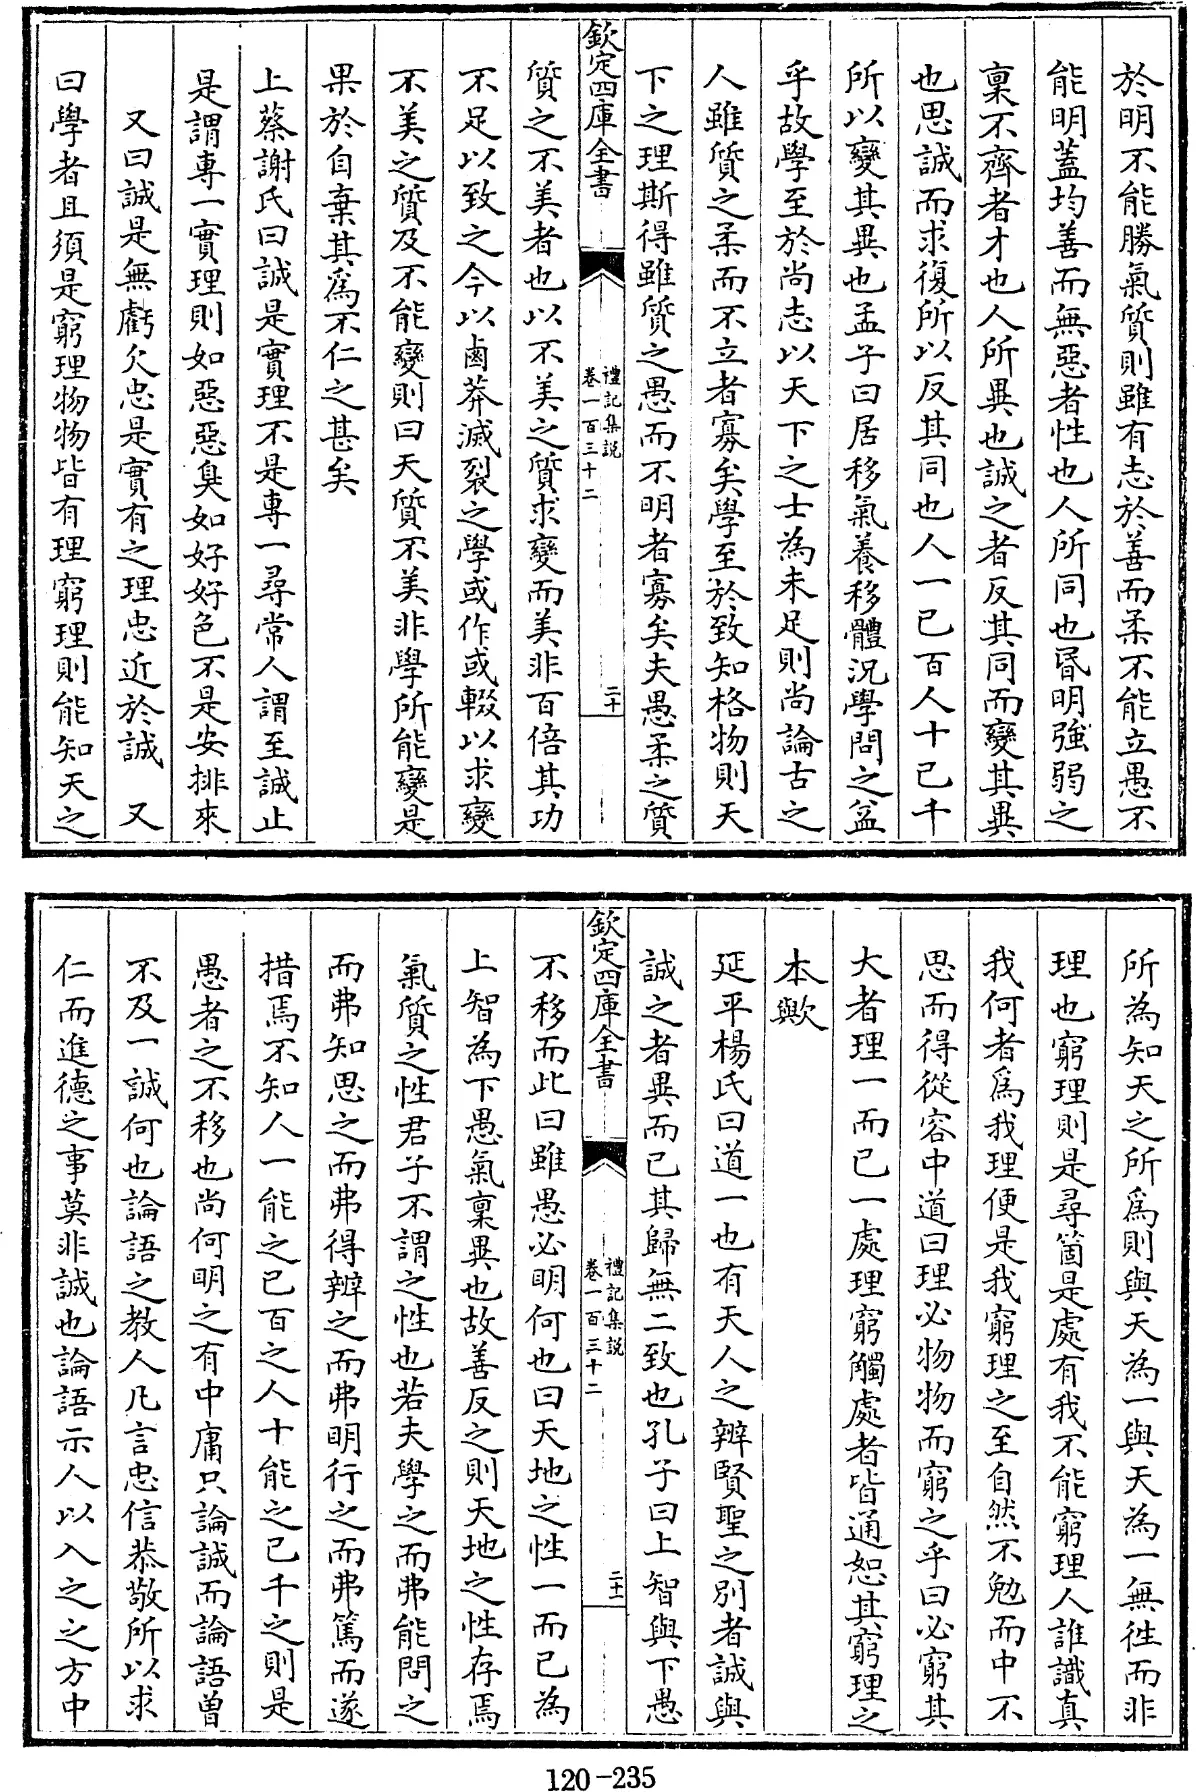 於明不能勝氣質則雖有志於善而柔不能立愚不
能明蓋均善而無惡者性也人所同也昬明強弱之
稟不齊者才也人所異也誠之者反其同而變其異
也思誠而求復所以反其同也人一已百人十已千
所以變其異也孟子曰居移氣養移體況學問之益
乎故學至於尚志以天下之士為未足則尚論古之
人雖質之柔而不立者寡矣學至於致知格物則天
下之理斯得雖質之愚而不明者寡矣夫愚柔之質
欽定四庫全書
禮記集説
卷一百三十二
二十
質之不美者也以不美之質求變而美非百倍其功
不足以致之今以鹵莽滅裂之學或作或輟以求變
不美之質及不能變則曰天質不美非學所能變是
果於自棄其為不仁之甚矣
上蔡謝氏曰誠是實理不是專一尋常人謂至誠止
是謂專一實理則如惡惡臭如好好色不是安排來
又曰誠是無虧欠忠是實有之理忠近於誠 又
曰學者且須是窮理物物皆有理窮理則能知天之
所為知天之所為則與天為一與天為一無徃而非
理也窮理則是尋箇是處有我不能窮理人誰識真
我何者為我理便是我窮理之至自然不勉而中不
思而得從容中道曰理必物物而窮之乎曰必窮其
大者理一而已一處理窮觸處者皆通恕其窮理之
本歟
延平楊氏曰道一也有天人之辨賢聖之別者誠與
誠之者異而已其歸無二致也孔子曰上智與下愚
欽定四庫全書
禮記集説
卷一百三十二
二十一
不移而此曰雖愚必明何也曰天地之性一而已為
上智為下愚氣稟異也故善反之則天地之性存焉
氣質之性君子不謂之性也若夫學之而弗能問之
而弗知思之而弗得辨之而弗明行之而弗篤而遂
措焉不知人一能之已百之人十能之已千之則是
愚者之不移也尚何明之有中庸只論誠而論語曽
不及一誠何也論語之教人凡言忠信恭敬所以求
仁而進德之事莫非誠也論語示人以入之之方中
120-235